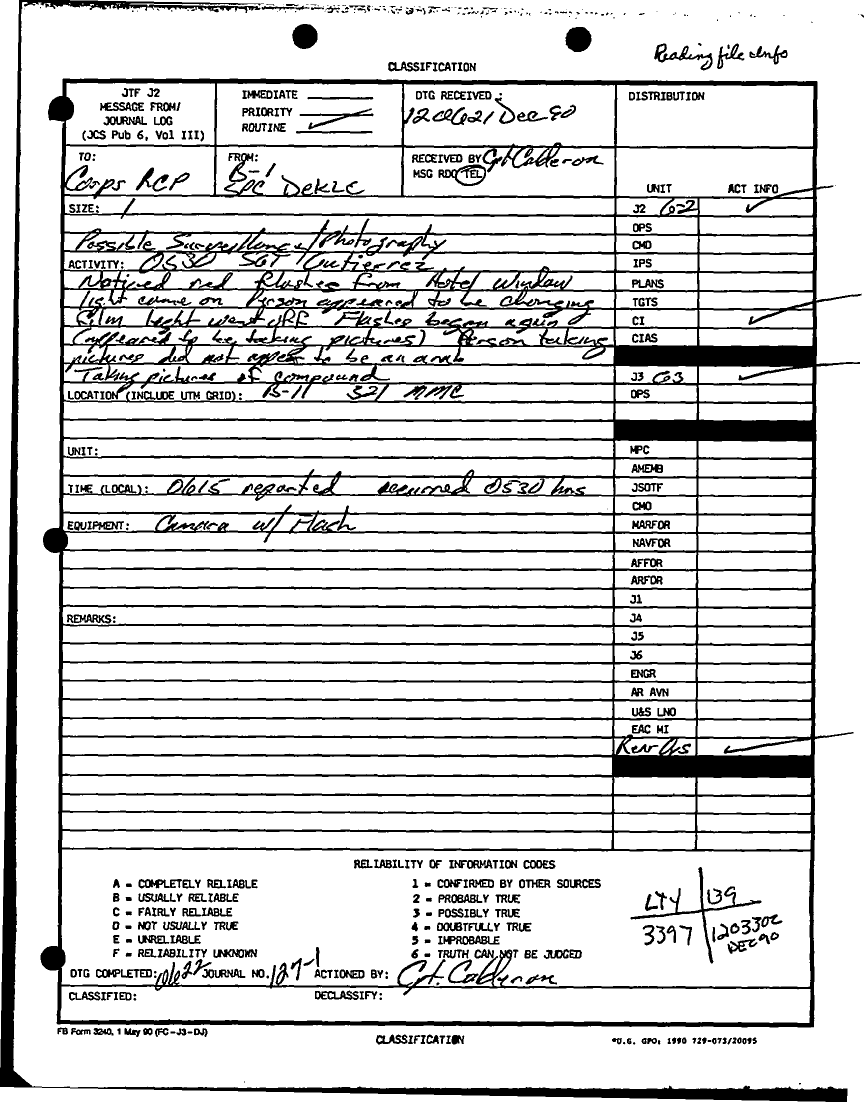 Reading file Info
CLASSIFICATION
JTF J2
MESSAGE FROM/
JOURNAL LOG
(JCS Pub 6, Vol III)
IMMEDIATE
PRIORITY
ROUTINE
DTG RECEIVED :
120621 Dec 90
DISTRIBUTION
TO:
Coops RCP
FROM:
B-1
SPC
RECEIVED BY Cpt. Calderon
MSG RDO TEL
UNIT ACT INFO
SIZE: 1
J2 G-2
OPS
Possible Surveillance/Photography
CMO
ACTIVITY: 0530 SGT Gutierrez
IPS
Noticed red flashes from Hotel Window
PLANS
light came on Person appeared to be changing
TGTS
film light went off Flashes began again
CI
(appeared to be taking pictures) Person taking
CIAS
pictures did not appear to be an arab
Taking pictures of compound
J3 G3
LOCATION (INCLUDE UTM GRID): B-11 321 MMC
OPS
UNIT:
MPC
AMEMB
TIME (LOCAL): 0615 reported occurred 0530 hrs
JSOTF
CMO
EQUIPMENT: Camara w/ Flash
MARFOR
NAVFOR
AFFOR
ARFOR
J1
REMARKS:
J4
J5
J6
ENGR
AR AVN
U&S LNO
EAC MI
Rear Ops
RELIABILITY OF INFORMATION CODES
A = COMPLETELY RELIABLE
B = USUALLY RELIABLE
C = FAIRLY RELIABLE
D = NOT USUALLY TRUE
E = UNRELIABLE
F = RELIABILITY UNKNOWN
1 = CONFIRMED BY OTHER SOURCES
2 = PROBABLY TRUE
3 = POSSIBLY TRUE
4 = DOUBTFULLY TRUE
5 = IMPROBABLE
6 = TRUTH CAN NOT BE JUDGED
LTY 139
3397 120330Z
DEC 90
DTG COMPLETED: 0622 JOURNAL NO. 127-1 ACTIONED BY: Cpt. Calderon
CLASSIFIED: DECLASSIFY:
FB Form 3240, 1 May 90 (FC-J3-DJ)
CLASSIFICATION
*U.S. GPO: 1990 729-073/20095